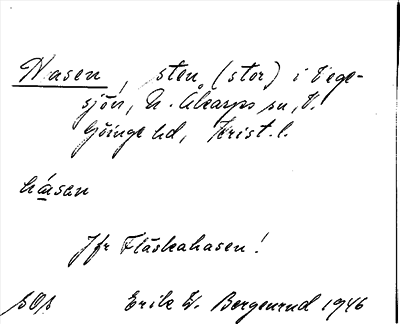 Nasen, sten (stor) i Vege-
sjön, N. Åkarps sn, V.
Göinge hd, Krist. l.
násan
Jfr Fläskahasen!
Erik W. Bergenrud 1946